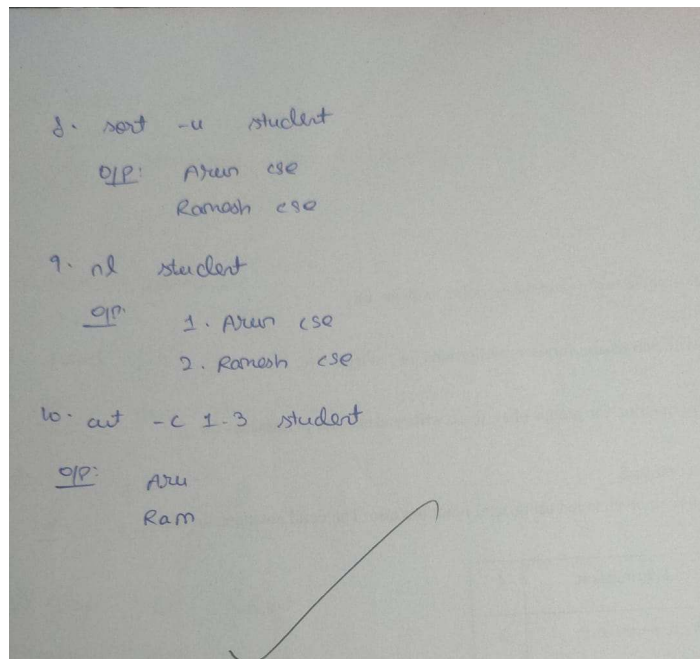 8. sort -u student
O/P: Arun cse
Ramesh cse
9. nl student
O/P. 1. Arun cse
2. Ramesh cse
10. cut -c 1-3 student
O/P: Aru
Ram